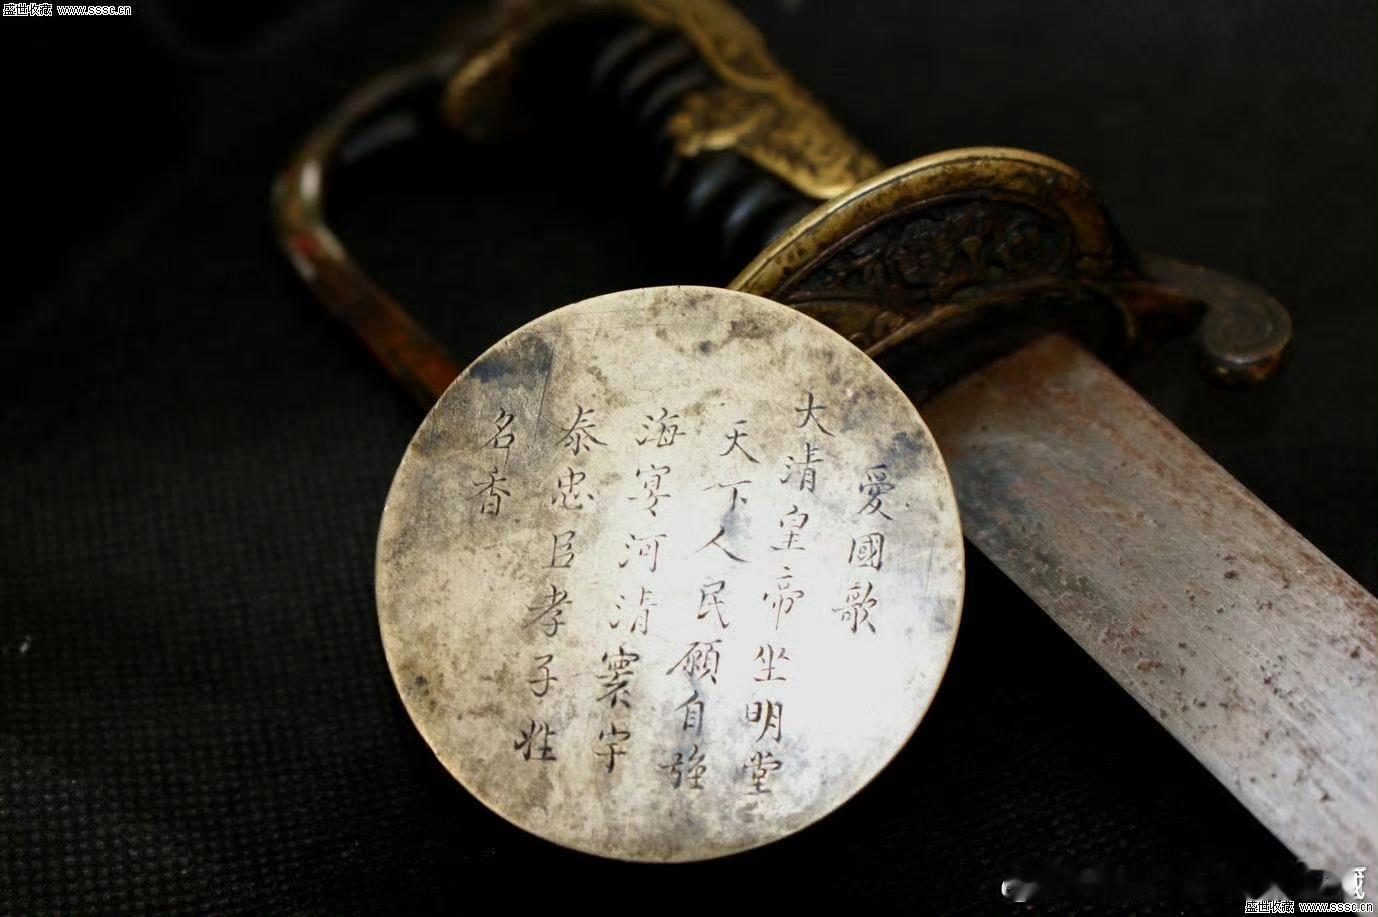 盛世收藏 www.sssc.cn
愛國歌
大清皇帝坐明堂
天下人民願自強
海宴河清寰宇
泰忠臣孝子姓
名香
盛世收藏 www.sssc.cn